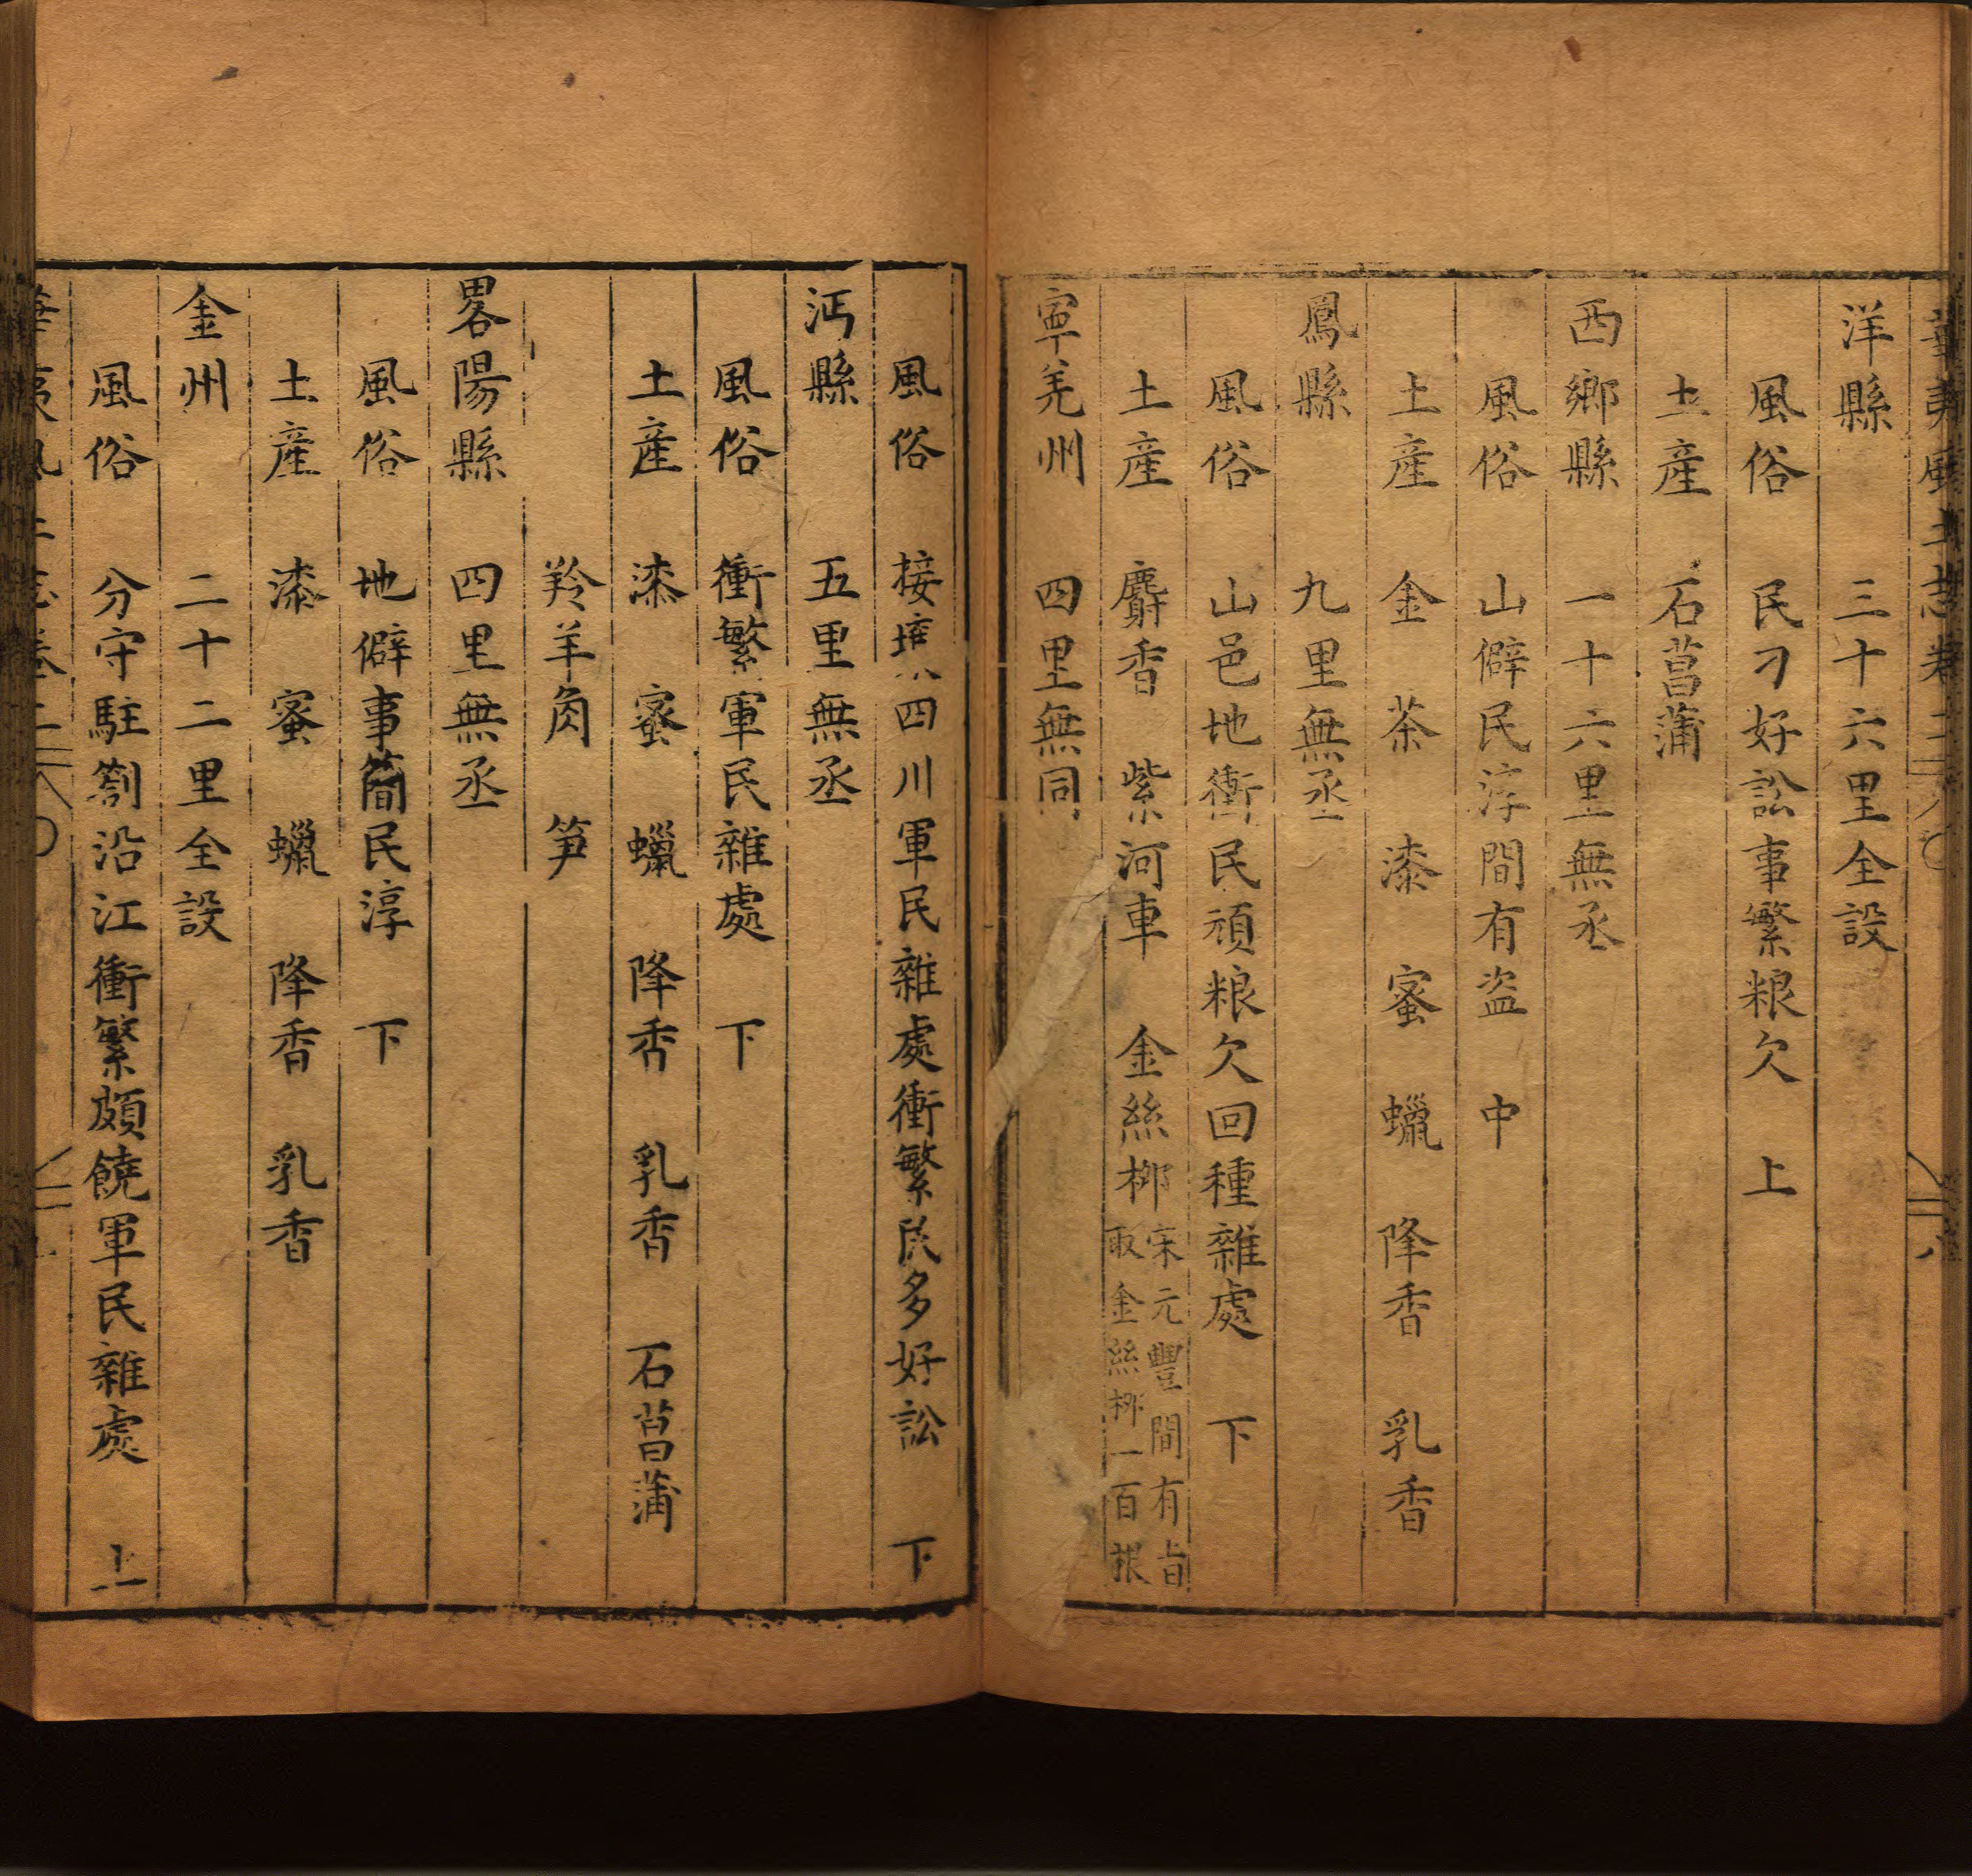 華夷風土志卷二
八
洋縣 三十六里全設
風俗 民刁好訟事繁粮欠 上
土産 石菖蒲
西鄉縣 一十六里無丞
風俗 山僻民淳間有盗 中
土産 金 茶 漆 蜜 蠟 降香 乳香
鳳縣 九里無丞
風俗 山邑地衝民頑粮欠回種雜處 下
土産 麝香 紫河車 金絲桺 宋元豐間有旨
取金絲桺一百根
寜羌州 四里無同
風俗 接 四川軍民雜處衝繁民多好訟 下
沔縣 五里無丞
風俗 衝繁軍民雜處 下
土産 漆 蜜 蠟 降香 乳香 石菖蒲
羚羊角 笋
畧陽縣 四里無丞
風俗 地僻事簡民淳 下
土産 漆 蜜 蠟 降香 乳香
金州 二十二里全設
風俗 分守駐劄沿江衝繁頗饒軍民雜處 上
華夷風土志卷二